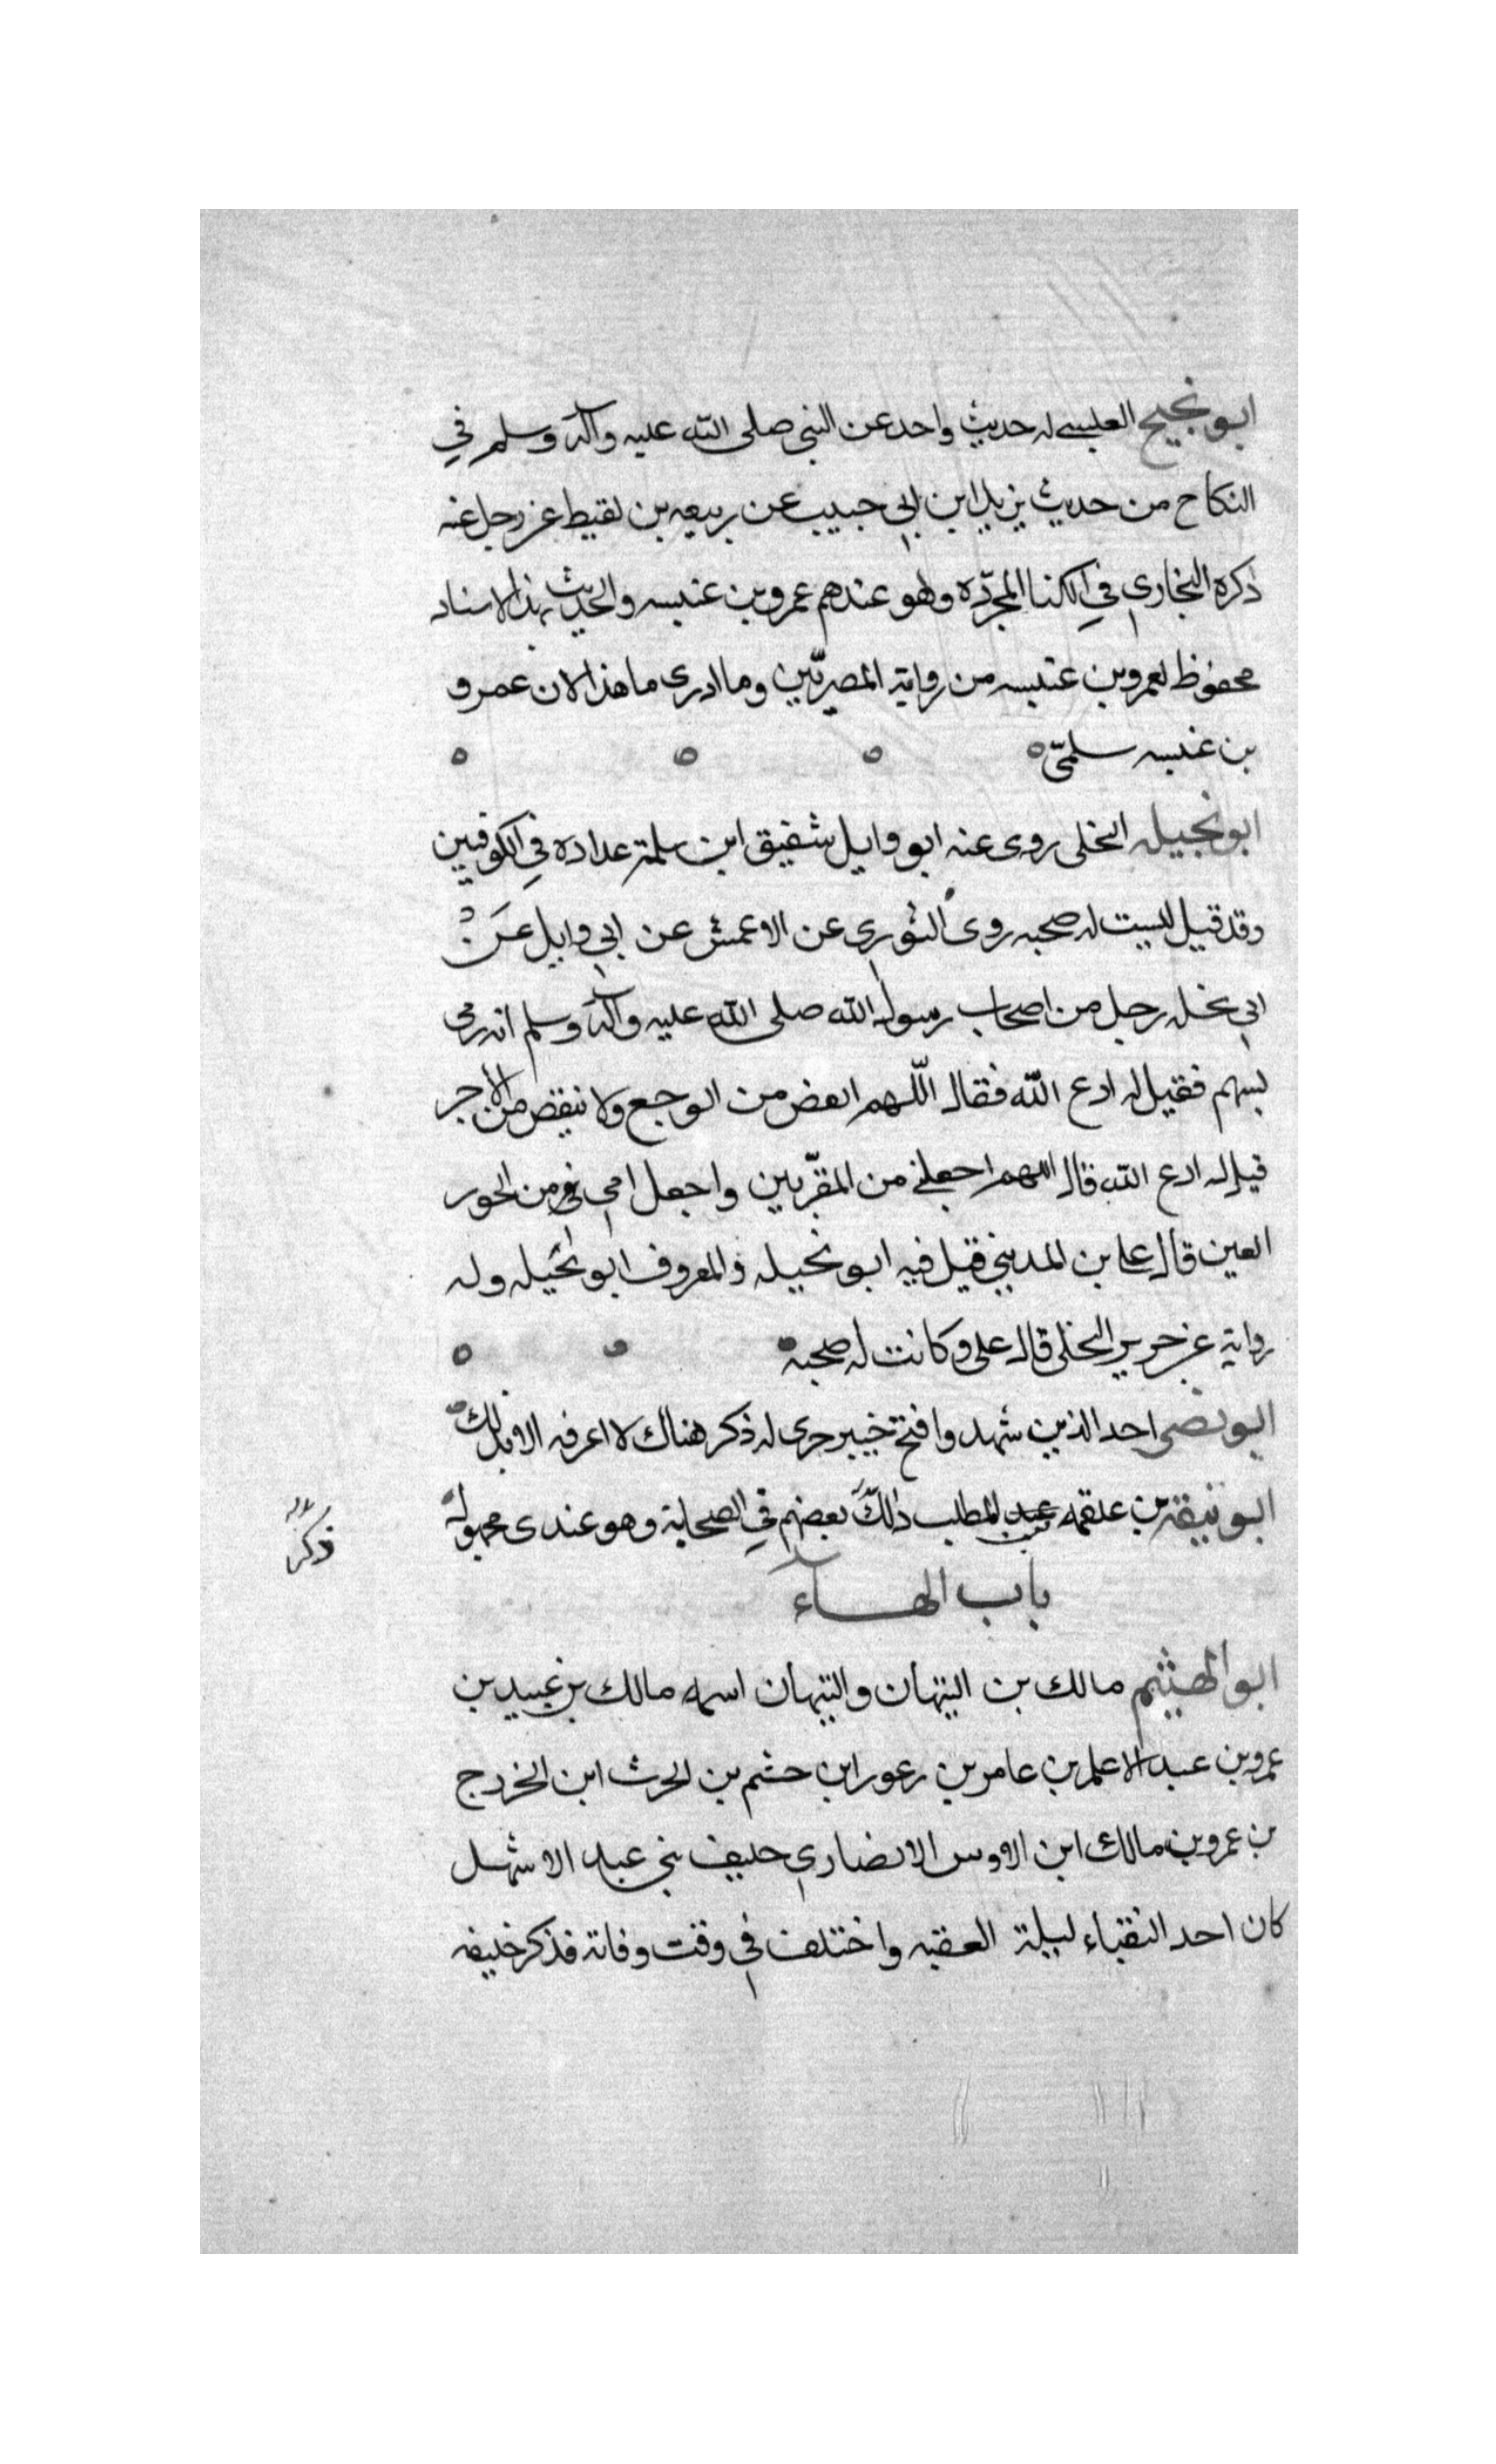 ابو نجيح العبسي له حديث واحد عن النبي صلى الله عليه وآله وسلم في
النكاح من حديث يزيد ابن ابي حبيب عن ربيعه بن لقيط عن رجل عنه
ذكره البخاري في الكنا المجرّده وهو عندهم عمرو بن عنبسه والحديث بهذا الاسناد
محفوظ لعمرو بن عنبسه من رواية المصريّين وما ادرى ما هذا الان عمرو
بن عنبسه سلمىّ
ابو نجيله البخلى روى عنه ابو وايل شقيق ابن سلمة عداده في الكوفيين
وقد قيل ليست له صحبه روى الثوري عن الاعمش عن ابي وايل عن
ابي نخله رجل من اصحاب رسول الله صلى الله عليه وآله وسلم انه رمى
بسهم فقيل له ادع الله فقال اللّهم انعض من الوجع ولا تنقص من الاجر
قيل له ادع الله قال اللهم اجعلني من المقرّبين واجعل امي من الحور
العين قال على بن المديني قيل فيه ابو نخيله والمعروف ابو نخيله وله
رواية عن جرير البخلى قال على وكانت له صحبه
ابو نضر احد الذين شهدوا فتح خيبر جرى له ذكر هناك لا اعرفه الا بذلك
ابو نبقة بن علقمه عبد المطلب ذلك بعضهم في الصحابة وهو عندى مجهول
ذكره
باب الهاء
ابو الهيثم مالك بن التيهان والتيهان اسمه مالك بن عبيد بن
عمرو بن عبد الاعلم بن عامر بن زعورا بن جشم بن الحرث ابن الخزرج
بن عمرو بن مالك ابن الاوس الانصاري حليف بني عبد الاشهل
كان احد النقباء ليلة العقبه واختلف في وقت وفاته فذكر خليفه